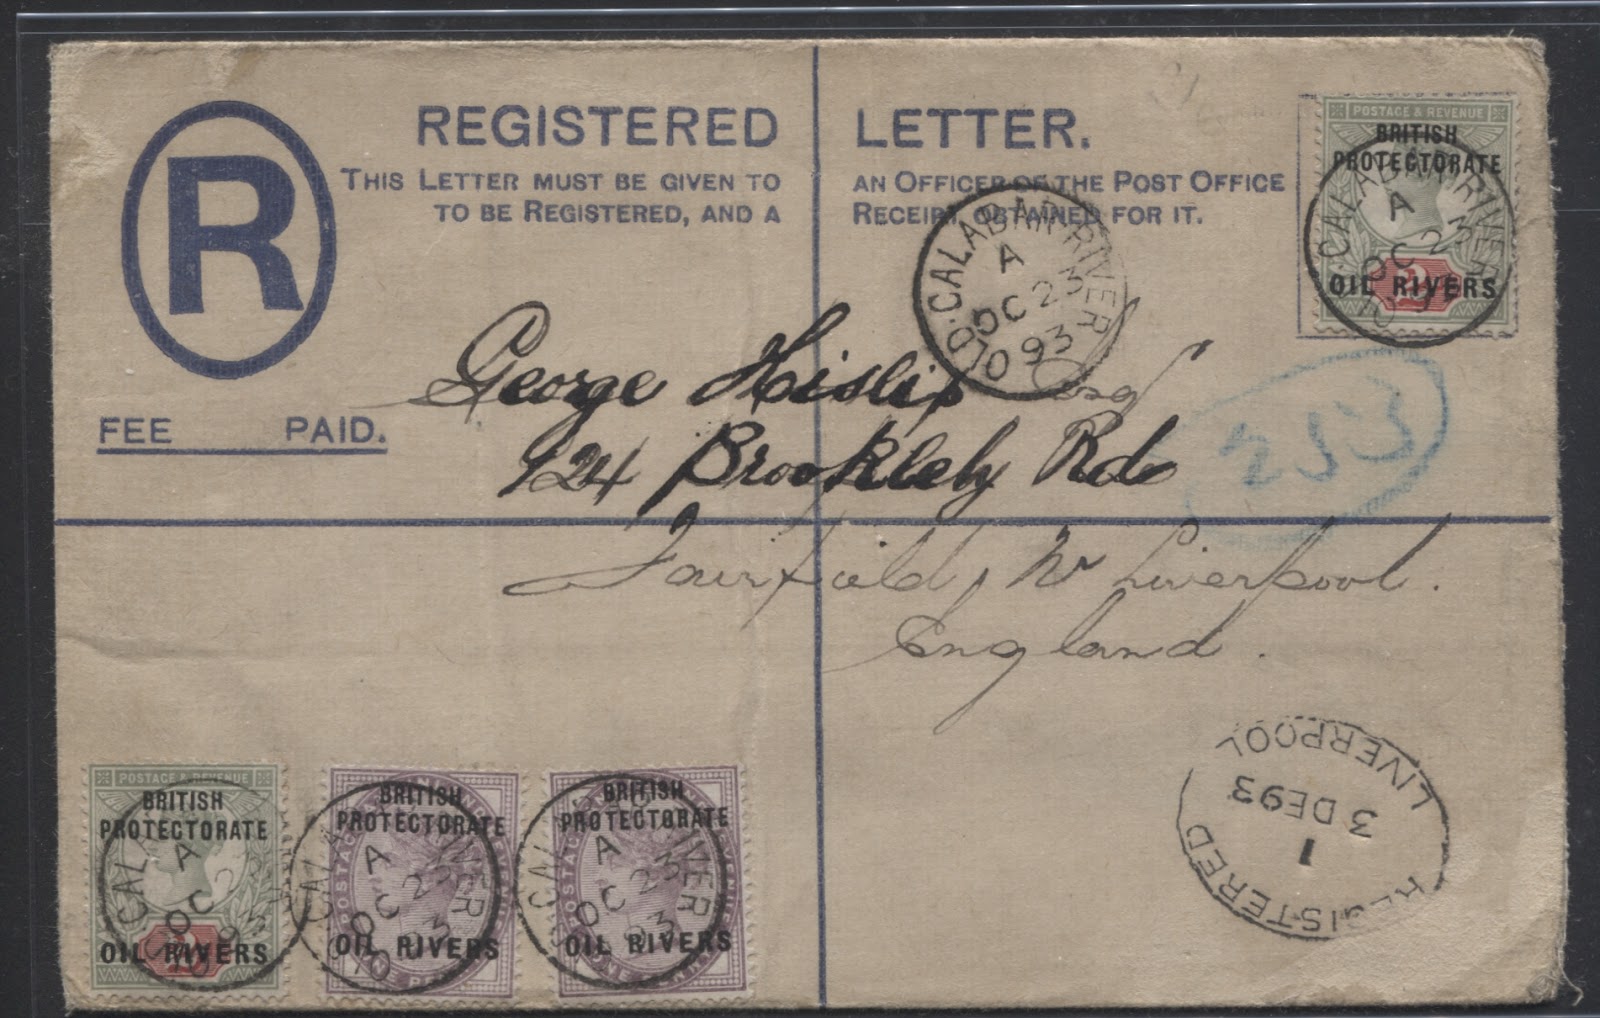 REGISTERED LETTER.
THIS LETTER MUST BE GIVEN TO AN OFFICER OF THE POST OFFICE
TO BE REGISTERED, AND A RECEIPT OBTAINED FOR IT.
R
FEE PAID.
POSTAGE & REVENUE
BRITISH
PROTECTORATE
OIL RIVERS
OLD·CALABAR·RIVER
A
OC 23
93
George Hislip Esq
124 Brooklely Rd
Fairfield, Nr Liverpool.
England.
253
REGISTERED
LIVERPOOL
1
3 DE93
POSTAGE & REVENUE
BRITISH
PROTECTORATE
OIL RIVERS
CALABAR RIVER
A
OC 23
93
BRITISH
PROTECTORATE
OIL RIVERS
A
OC 23
93
BRITISH
PROTECTORATE
OIL RIVERS
A
OC 23
93